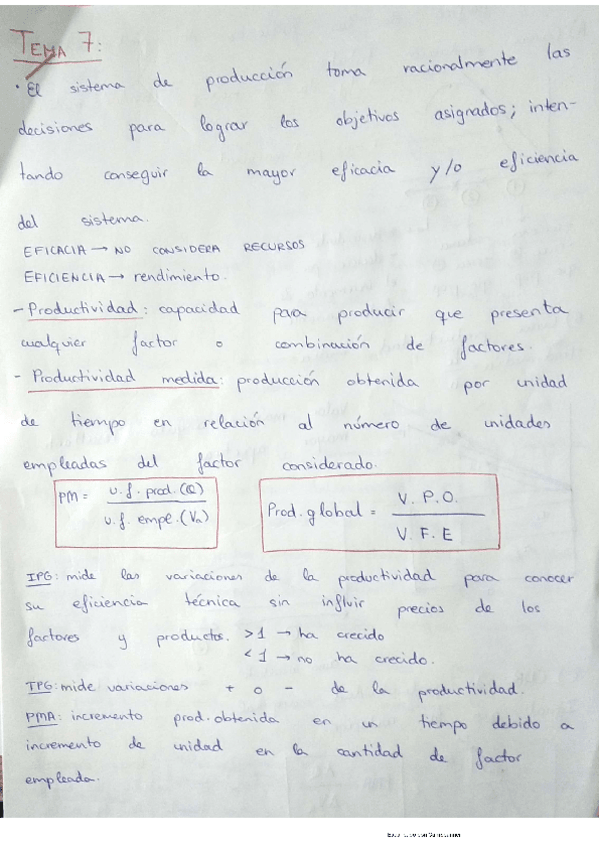 TEMA 7:
· El sistema de producción toma racionalmente las
decisiones para lograr los objetivos asignados; inten-
tando conseguir la mayor eficacia y/o eficiencia
del sistema.
EFICACIA → NO CONSIDERA RECURSOS
EFICIENCIA → rendimiento.
- Productividad: capacidad para producir que presenta
cualquier factor o combinación de factores.
- Productividad medida: producción obtenida por unidad
de tiempo en relación al número de unidades
empleadas del factor considerado.
PM = u.f. prod. (Q) / u.f. empl. (Vn)
Prod. global = V. P. O. / V. F. E
IPG: mide las variaciones de la productividad para conocer
su eficiencia técnica sin influir precios de los
factores y productos. >1 → ha crecido
<1 → no ha crecido.
TPG: mide variaciones + o - de la productividad.
PMA: incremento prod. obtenida en un tiempo debido a
incremento de unidad en la cantidad de factor
empleada.